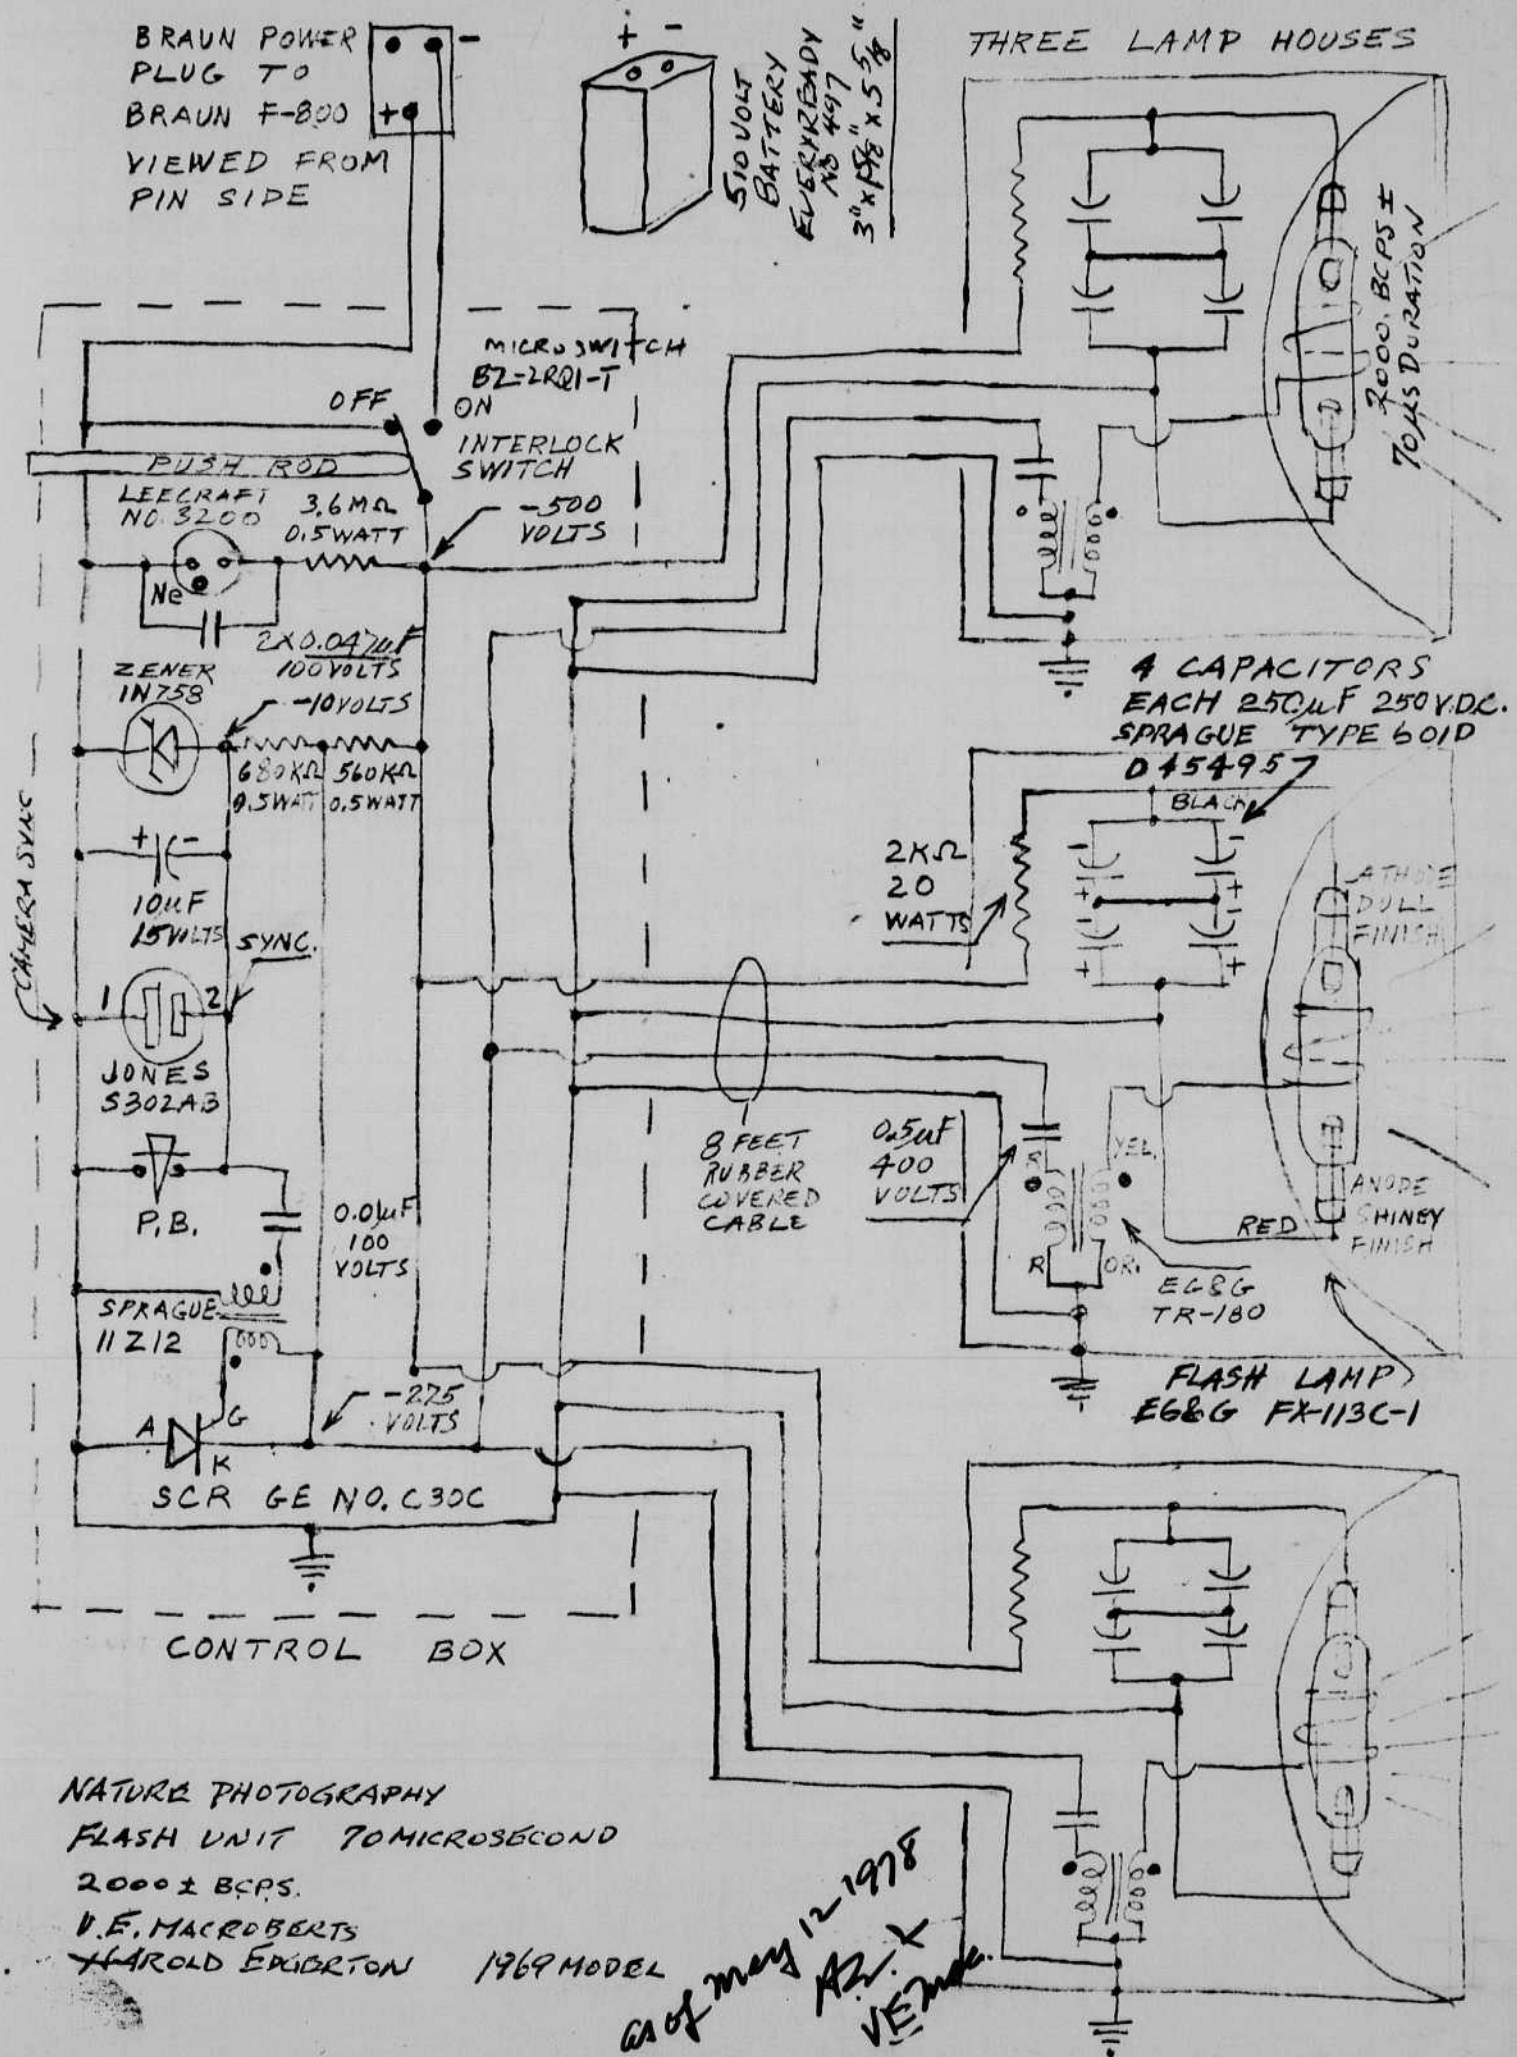 BRAUN POWER
PLUG TO
BRAUN F-800
VIEWED FROM
PIN SIDE
-
+
+ -
510 VOLT
BATTERY
EVERYREADY
NO 497
THREE LAMP HOUSES
2000. BCPS ±
70 µS DURATION
MICROSWITCH
BZ-2RQ1-T
OFF
ON
INTERLOCK
SWITCH
PUSH ROD
LEECRAFT
NO. 3200
3.6MΩ
0.5WATT
-500
VOLTS
Ne
2X0.047µF
100VOLTS
ZENER
1N758
-10VOLTS
680KΩ 560KΩ
0.5WATT 0.5WATT
+ -
10µF
15VOLTS
SYNC.
CAMERA SYNC
1 2
JONES
S302AB
P.B.
0.01µF
100
VOLTS
SPRAGUE
11Z12
-275
VOLTS
A G
K
SCR GE NO. C30C
CONTROL BOX
4 CAPACITORS
EACH 250µF 250V.D.C.
SPRAGUE TYPE 601D
D454957
BLACK
2KΩ
20
WATTS
- -
+ +
- -
+ +
ATHODE
DULL
FINISH
8 FEET
RUBBER
COVERED
CABLE
0.5µF
400
VOLTS
R
YEL.
R
OR.
RED
ANODE
SHINEY
FINISH
EG&G
TR-180
FLASH LAMP
EG&G FX-113C-1
NATURE PHOTOGRAPHY
FLASH UNIT 70 MICROSECOND
2000 ± BCPS.
V.E. MACROBERTS
HAROLD EDGERTON 1969 MODEL
as of may 12 1978